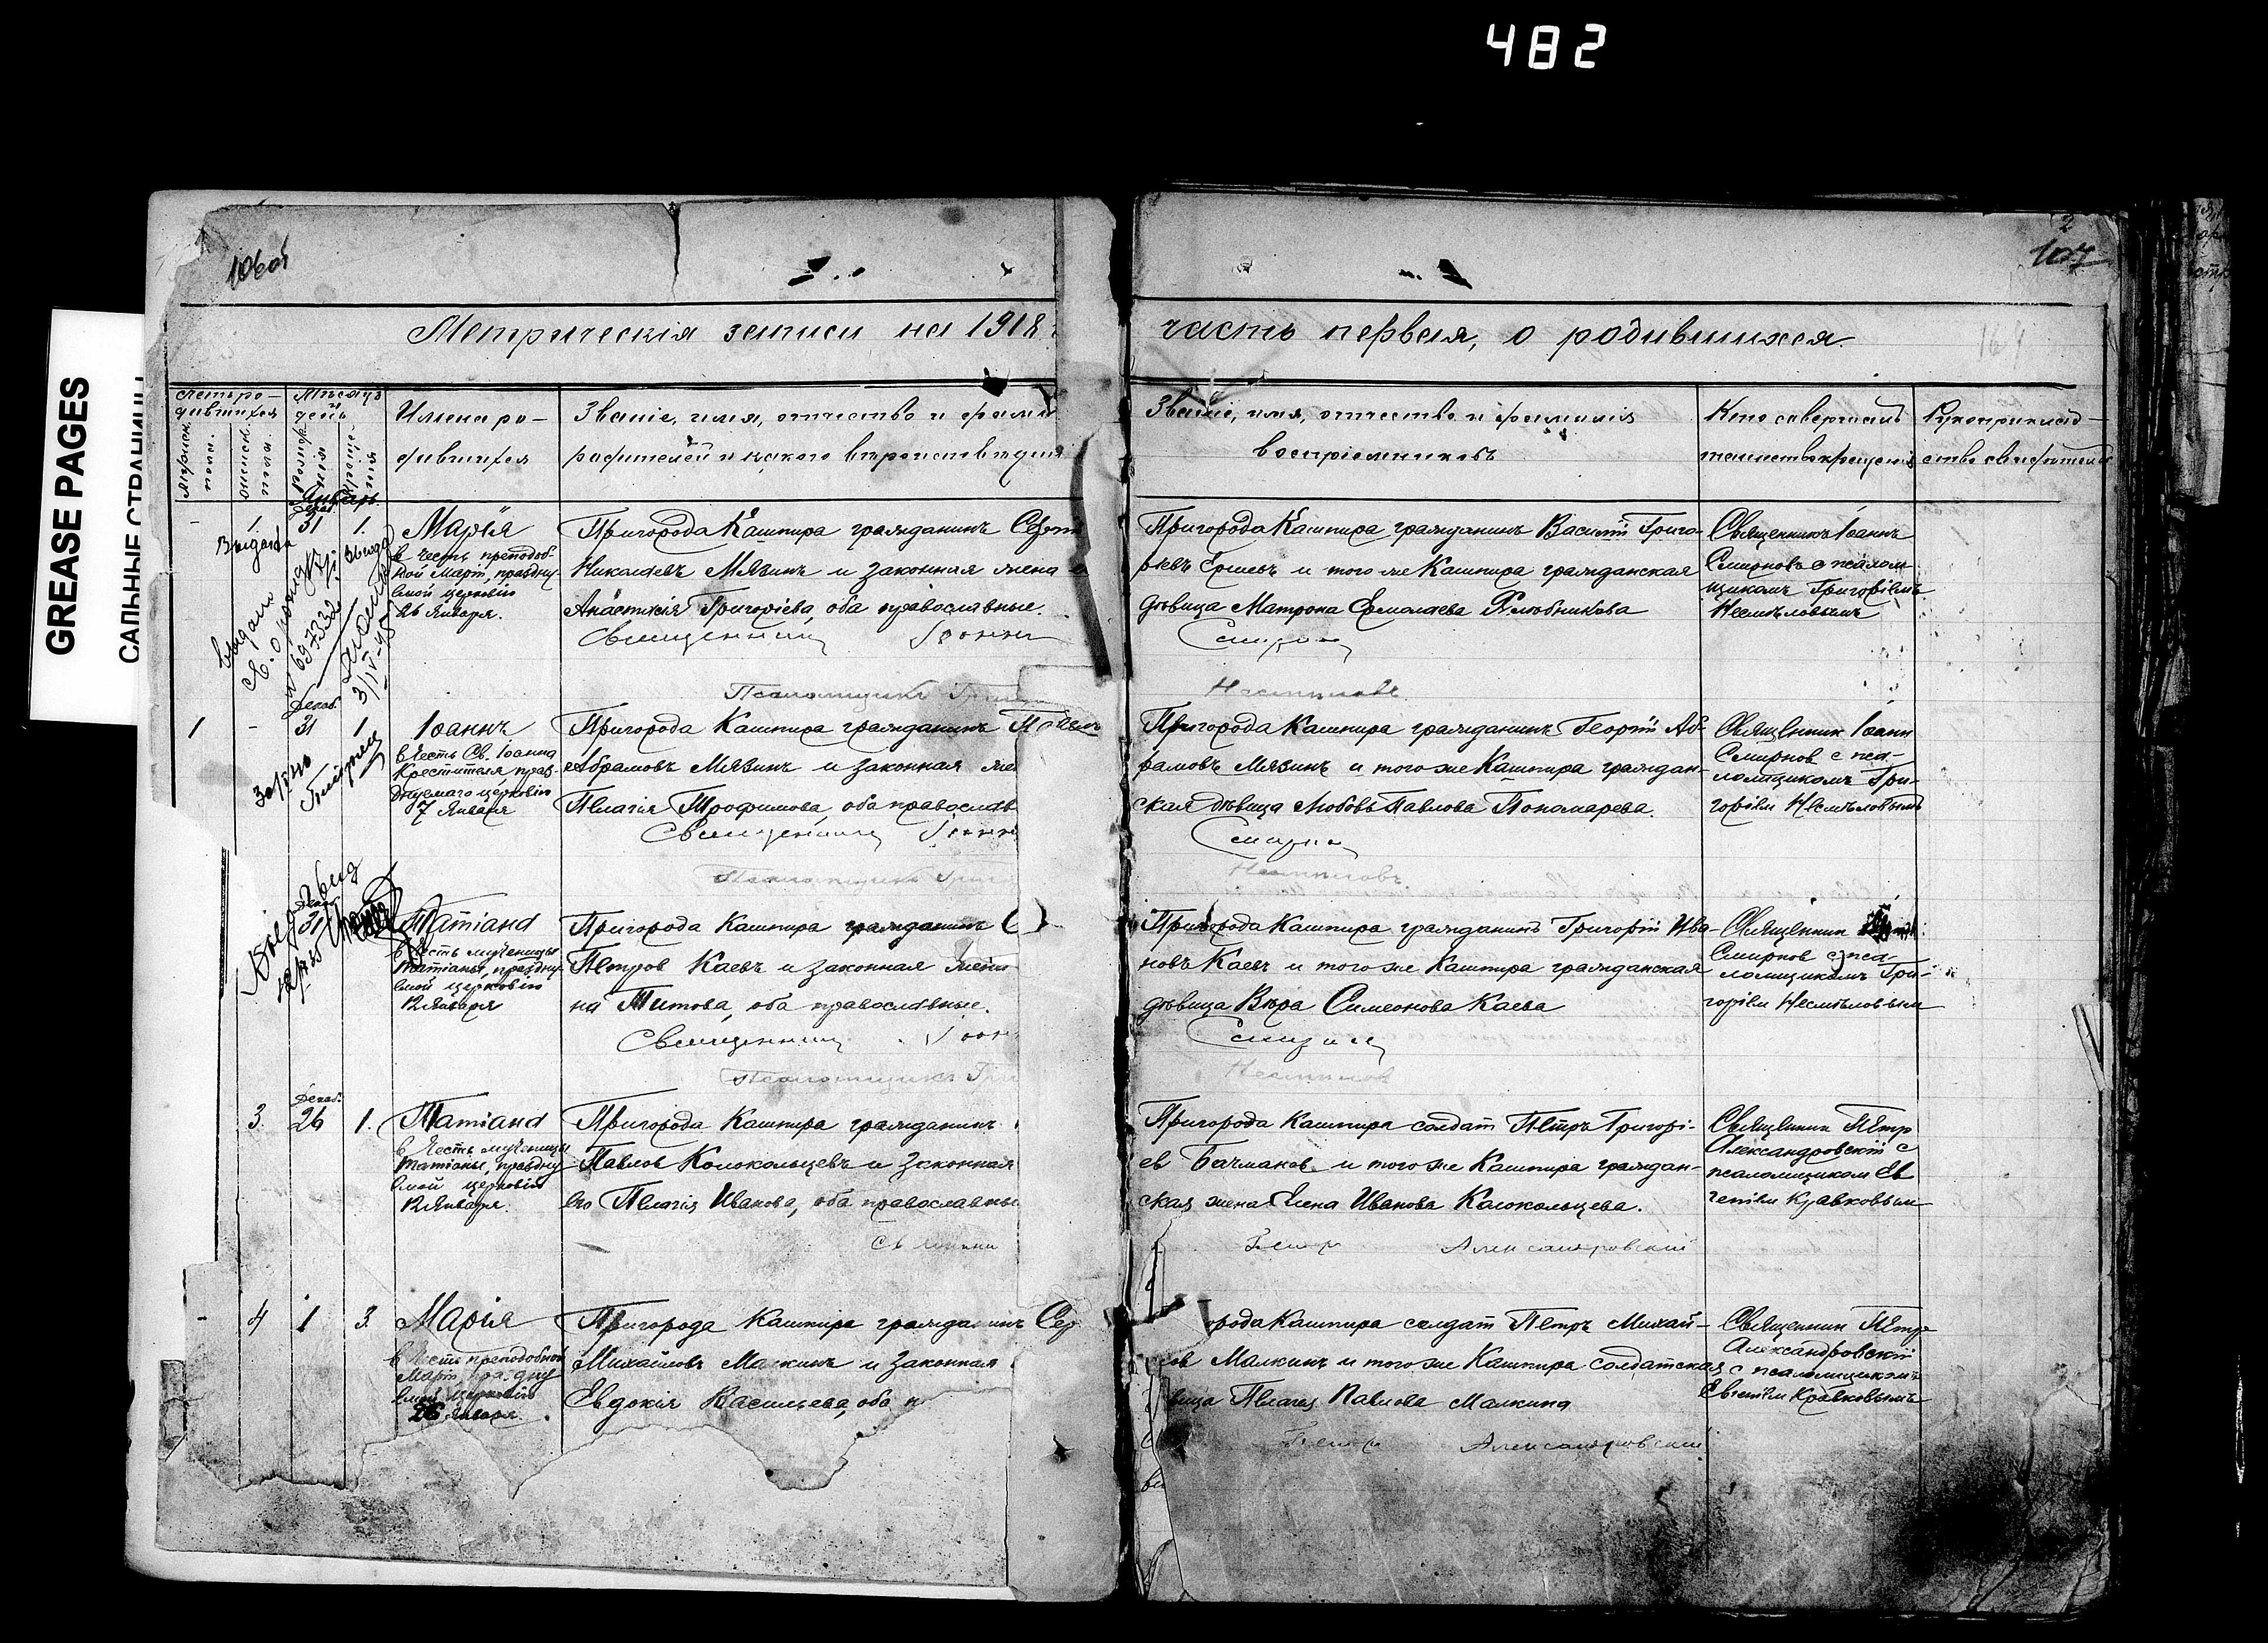 482
GREASE PAGES
САЛЬНЫЕ СТРАНИЦЫ
106об
2
107
Метрическія записи на 1918
часть первая, о родившихся.
Счетъ ро-
дившихся
Мѣсяцъ
и
день
Мужск.
пола.
Женск.
пола.
Рожде-
нія
Креще-
нія
Имена ро-
дившихся
Званіе, имя, отчество и фами
родителей и какого вѣроисповѣданія
Званіе, имя, отчество и фамилія
воспріемниковъ
Кто совершалъ
таинство крещенія
Рукоприклад-
ство свидѣтелей
Январь.
Декаб.
- 1. 31 1.
Марія
в честь преподоб-
ной Маріи, праздну-
емой церковію
26 Января.
Пригорода Кашпира гражданинъ
Николаевъ Мязинъ и законная жена
Анастасія Григоріева, оба православные.
Священникъ Іоаннъ
Псаломщикъ
Пригорода Кашпира гражданинъ Василій Григо-
рьевъ Ершовъ и того же Кашпира гражданская
дѣвица Матрона Ермолаева
Смирнов
Несмѣловъ
Священникъ Іоаннъ
Смирновъ с псалом-
щикомъ Григоріемъ
Несмѣловымъ
Декаб.
1 - 31 1
Іоаннъ
в честь Св. Іоанна
Крестителя праз-
днуемаго церковію
7 Января
Пригорода Кашпира гражданинъ Павелъ
Абрамовъ Мязинъ и законная же
Пелагія Трофимова, оба православ
Священникъ Іоанн
Псаломщикъ Григ
Пригорода Кашпира гражданинъ Георгій Аб-
рамовъ Мязинъ и того же Кашпира граждан-
ская дѣвица Любовь Павлова Пономарева.
Смирнов
Несмѣловъ
Священник Іоанн
Смирнов с пса-
ломщикомъ Гри-
горіем Несмѣловымъ
31
Татіана
в честь мученицы
Татіаны, праздну-
емой церковію
12 Января
Пригорода Кашпира гражданинъ С
Петров Каевъ и законная жена
на Титова, оба православные.
Священникъ Іоан
Псаломщикъ Гри
Пригорода Кашпира гражданинъ Григорій Ива-
новъ Каевъ и того же Кашпира гражданская
дѣвица Вѣра Симеонова Каева
Смирнов
Несмѣлов
Священник
Смирнов с пса-
ломщикомъ Гри-
горіем Несмѣловым
Декаб.
3. 26 1.
Татіана
в честь мученицы
Татіаны, праздну-
емой церковію
12 Января.
Пригорода Кашпира гражданинъ
Павлов Колокольцевъ и законная
его Пелагія Иванова, оба православны
Священни
Пригорода Кашпира солдат Петръ Григорі-
ев Бачманов и того же Кашпира граждан-
ская жена Елена Иванова Колокольцева.
Петр Александровскій
Священник Петр
Александровскій с
псаломщиком Ев
геніем Кравковым
- 4 1 3.
Марія
в честь преподобной
Маріи, праздну
емой церковію
26 Января.
Пригорода Кашпира гражданинъ Сер
Михайловъ Малкинъ и законная
Евдокія Васильева, оба п
орода Кашпира солдат Петръ Михай-
лов Малкинъ и того же Кашпира солдатская
вица Пелагія Павлова Малкина
Петр Александровскій
Священник Петр
Александровскій
с псаломщикомъ
Евгеніем Кравковымъ